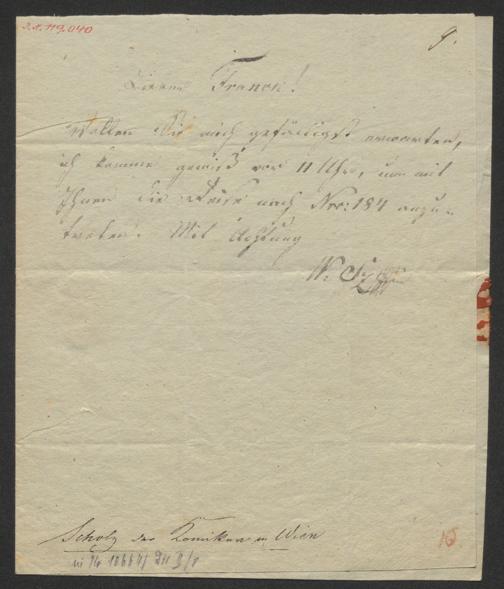 I.N. 119.040
9.
Lieber Freund!
Wollen Sie mich gefälligst erwarten,
ich komme gewiß vor 11 Uhr, um mit
Ihnen die Reise nach Nro: 184 anzu-
treten. Mit Achtung
W. Scholz
Scholz der Komiker in Wien